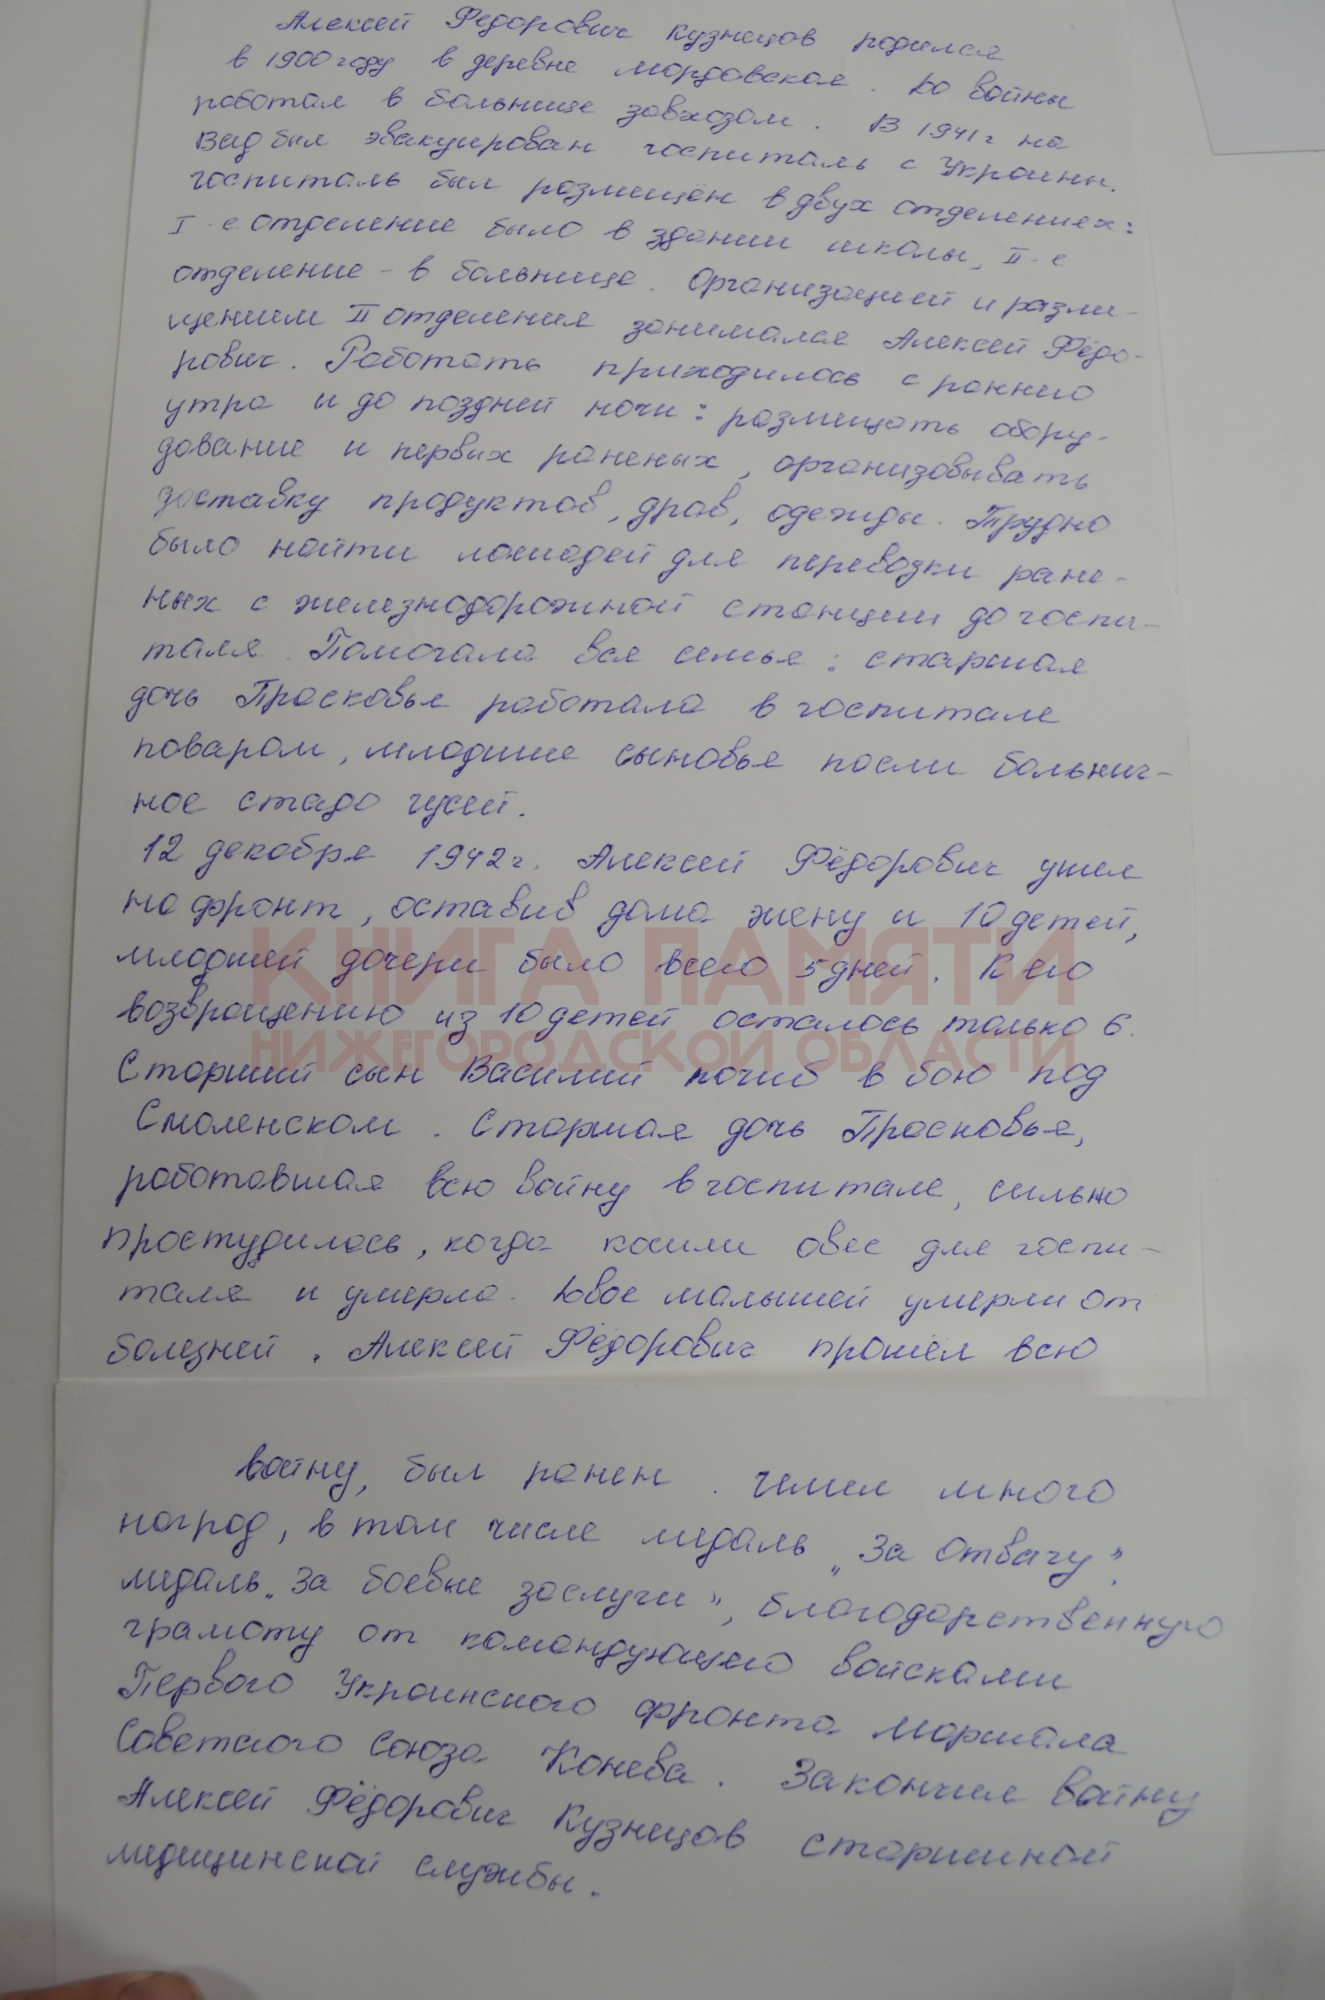 Алексей Фёдорович Кузнецов родился
в 1900 году в деревне Мордовское. До войны
работал в больнице завхозом. В 1941 г на
Вад был эвакуирован госпиталь с Украины.
Госпиталь был размещён в двух отделениях:
I-е отделение было в здании школы, II-е
отделение - в больнице. Организацией и разме-
щением II отделения занимался Алексей Фёдо-
рович. Работать приходилось с раннего
утра и до поздней ночи: размещать обору-
дование и первых раненых, организовывать
доставку продуктов, дров, одежды. Трудно
было найти лошадей для перевозки ране-
ных с железнодорожной станции до госпи-
таля. Помогала вся семья: старшая
дочь Прасковья работала в госпитале
поваром, младшие сыновья пасли больнич-
ное стадо гусей.
12 декабря 1942 г. Алексей Фёдорович ушел
на фронт, оставив дома жену и 10 детей,
младшей дочери было всего 5 дней. К его
КНИГА ПАМЯТИ
возвращению из 10 детей осталось только 6.
НИЖЕГОРОДСКОЙ ОБЛАСТИ
Старший сын Василий погиб в бою под
Смоленском. Старшая дочь Прасковья,
работавшая всю войну в госпитале, сильно
простудилась, когда косили овес для госпи-
таля и умерла. Двое малышей умерли от
болезней. Алексей Фёдорович прошёл всю
войну, был ранен. Имел много
наград, в том числе медаль „За отвагу",
медаль „За боевые заслуги", благодарственную
грамоту от командующего войсками
Первого Украинского фронта Маршала
Советского Союза Конева. Закончил войну
Алексей Фёдорович Кузнецов старшиной
медицинской службы.